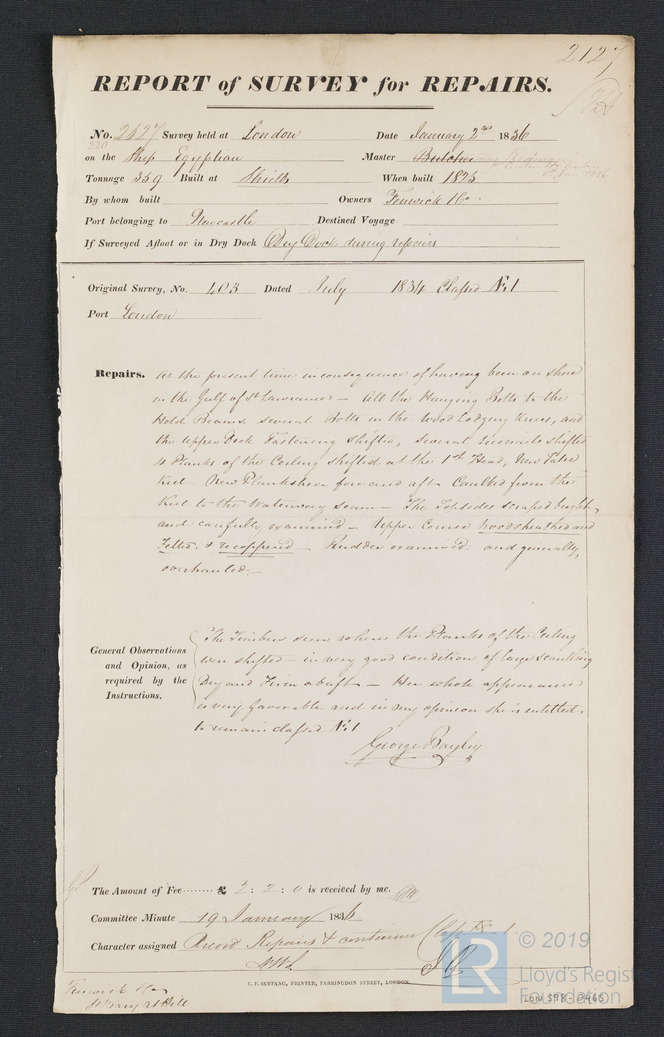 2127
REPORT of SURVEY for REPAIRS.
No. 2127 Survey held at London Date January 2nd 1836
on the Ship Egyptian Master Butcher
Tonnage 359 Built at Shields When built 1825
By whom built Owners Fenwick & Co
Port belonging to Newcastle Destined Voyage
If Surveyed Afloat or in Dry Dock Dry Dock during repairs
Original Survey, No. 403 Dated July 1834 Classed Æ1
Port London
Repairs. At the present time in consequence of having been on shore
in the Gulf of St Lawrence — All the Hanging Bolts to the
Hold Beams, several Bolts in the Wood Lodging Knees, and
the upper Deck Fastening shifted, several shifted
4 Planks of the Ceiling shifted at the 1st Head, New False
Keel — New Planksheer fore and aft — Caulked from the
Keel to the Waterway seam — The Topsides scraped bright
and carefully examined — Upper Course Woodsheathed and
Felted & recoppered — Rudder examined and generally
overhauled —
General Observations
and Opinion, as
required by the
Instructions.
The Timbers seen where the Planks of the Ceiling
were shifted — in very good condition of large scantling
Dry and Firm abaft — Her whole appearance
is very favorable and in my opinion she is entitled
to remain classed Æ1
George Bayley
The Amount of Fee ........ £ 2 : 2 : 0 is received by me.
Committee Minute 19 January 1836
Character assigned Record Repairs & continue Class
C. F. SEYFANG, PRINTER, FARRINGDON STREET, LONDON.
Fenwick & Co
St Mary at Hill
LR © 2019
Lloyd's Register
Foundation